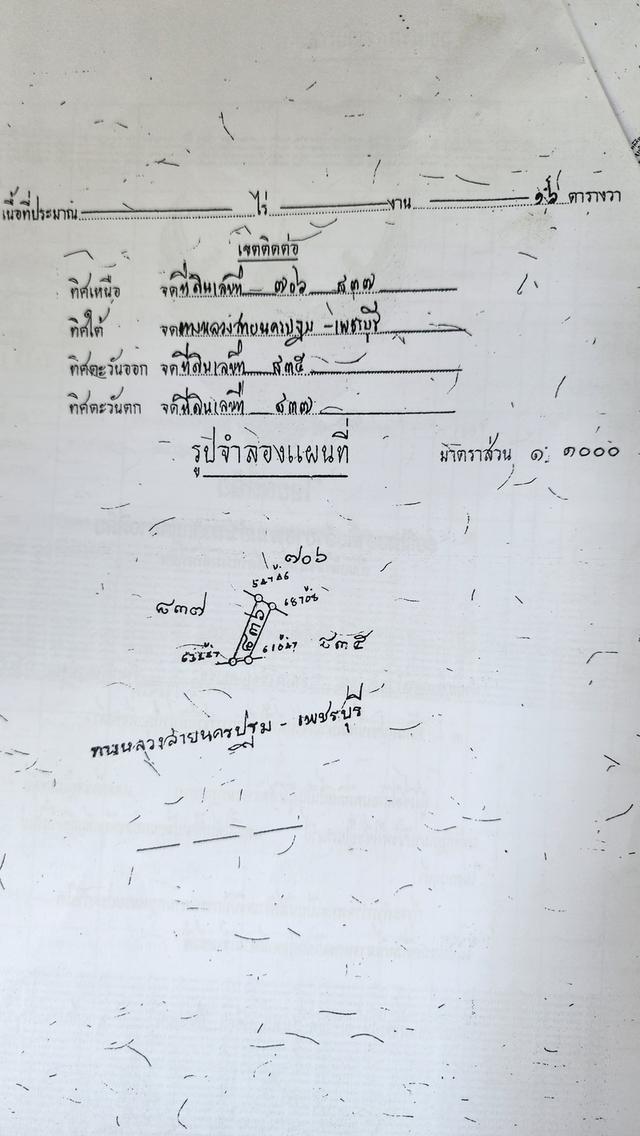 เนื้อที่ประมาณ ไร่ งาน ๑๖ ตารางวา
เขตติดต่อ
ทิศเหนือ จดที่ดินเลขที่ ๗๐๖ ๘๓๗
ทิศใต้ จดทางหลวงสายนครปฐม - เพชรบุรี
ทิศตะวันออก จดที่ดินเลขที่ ๘๓๕
ทิศตะวันตก จดที่ดินเลขที่ ๘๓๗
รูปจำลองแผนที่ มาตราส่วน ๑: ๑๐๐๐
๗๐๖
๘๓๗
๘๓๖
๘๓๕
ถนนหลวงสายนครปฐม - เพชรบุรี